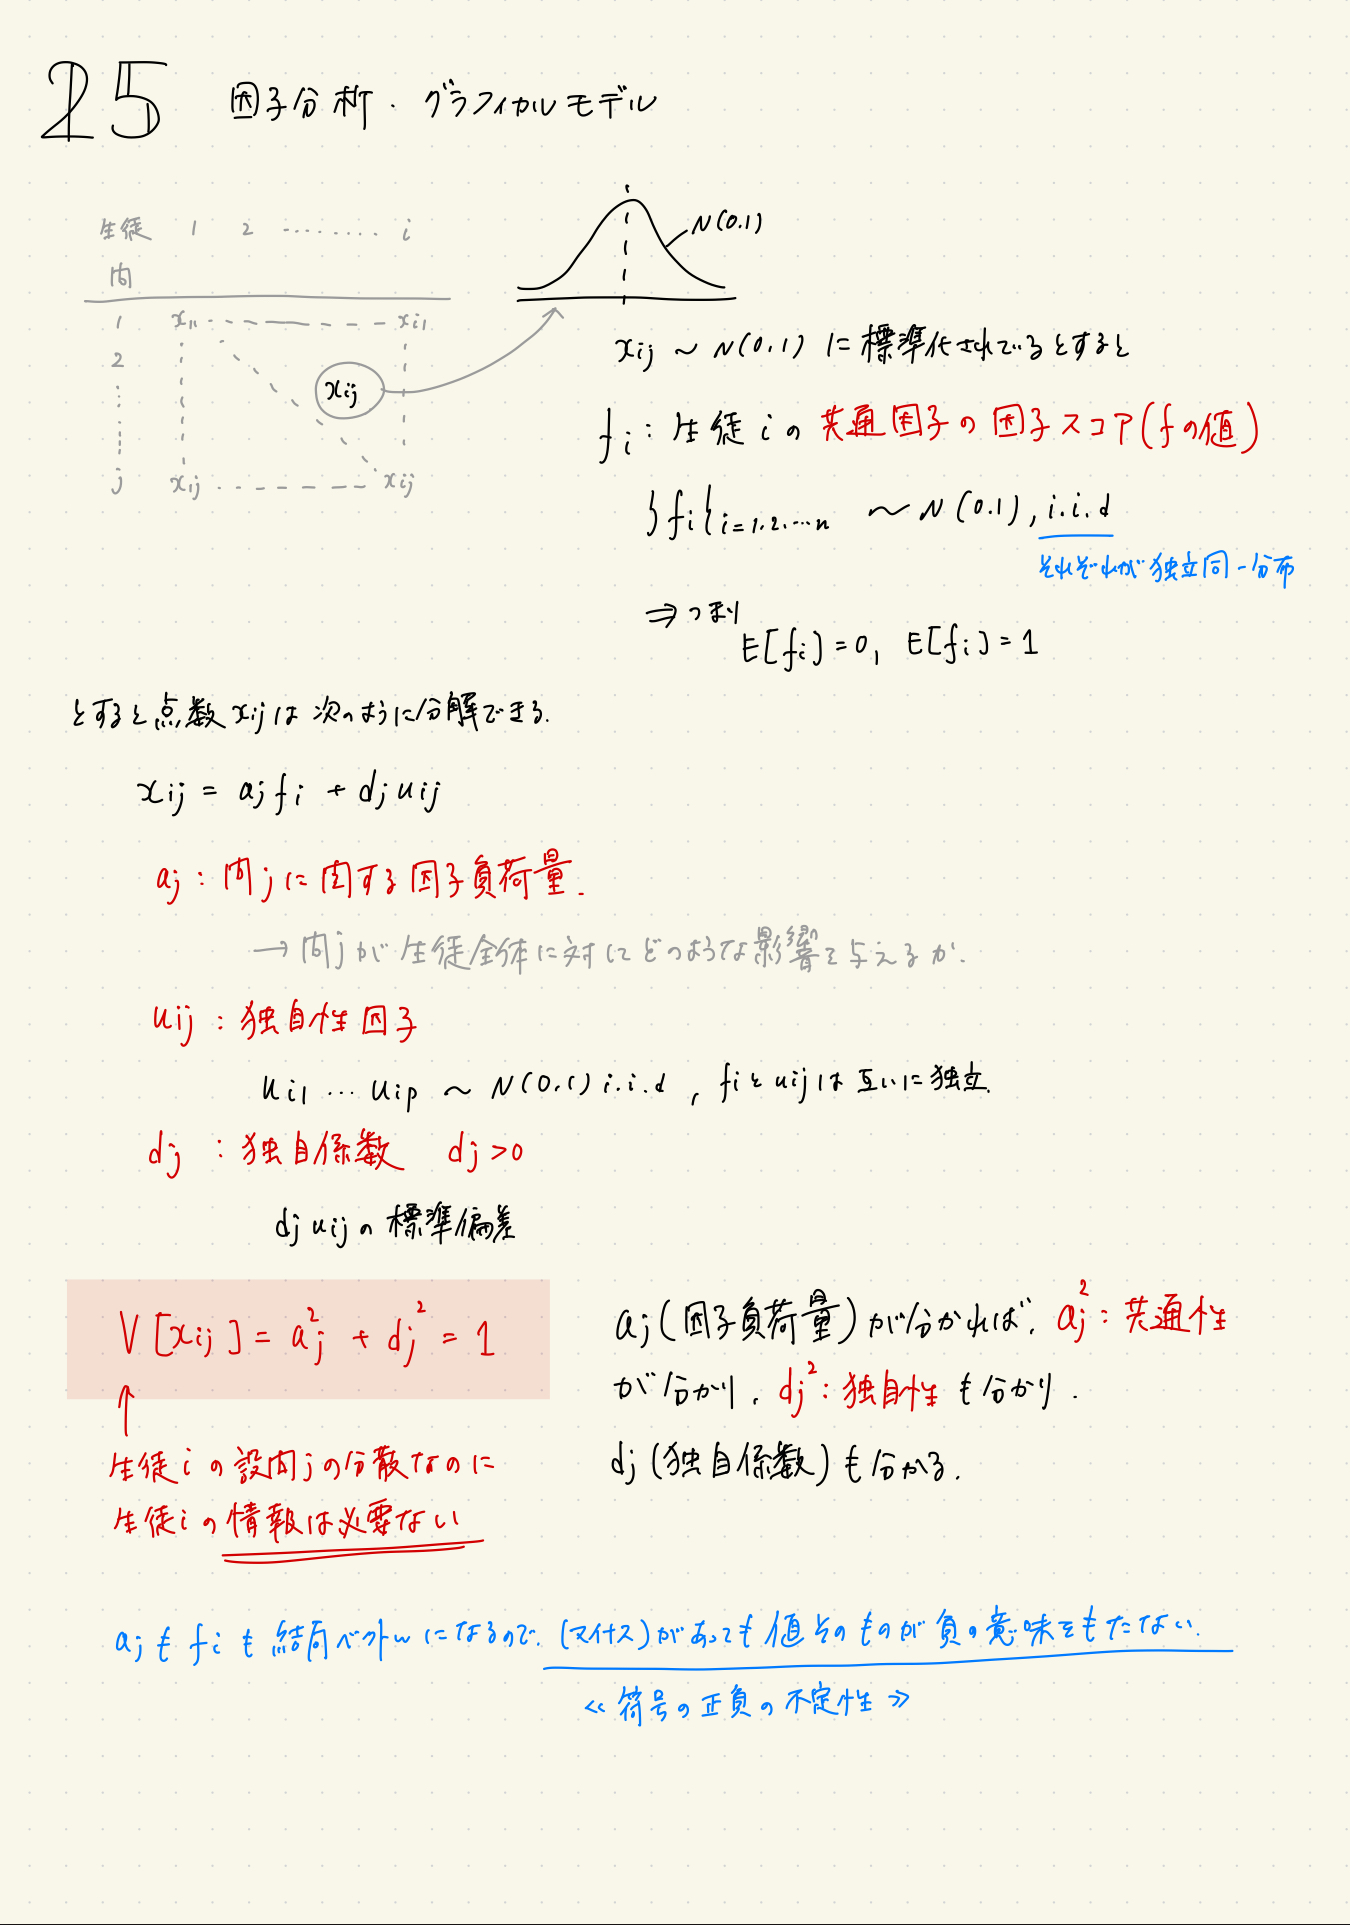 25 因子分析・グラフィカルモデル
生徒 1 2 ········ i
問
1 x₁₁ - - - - - - xi1
2
xij
j x1j - - - - - - xij
N(0.1)
xij ~ N(0.1) に標準化されているとすると
fi : 生徒 i の 共通因子の因子スコア(fの値)
}fi{i=1.2.…n ~ N(0.1), i.i.d
それぞれが独立同一分布
⇒つまり
E[fi]=0, E[fi]=1
とすると点数 xij は 次のように分解できる.
xij = ajfi + djuij
aj : 問jに関する因子負荷量.
→ 問jが生徒全体に対してどのような影響を与えるか.
uij : 独自性因子
ui1 … uip ~ N(0.1) i.i.d , fiとuijは互いに独立.
dj : 独自係数 dj>0
dj uijの標準偏差
V[xij] = aj² + dj² = 1
↑
生徒iの設問jの分散なのに
生徒iの情報は必要ない
aj(因子負荷量)が分かれば, aj²:共通性
が分かり, dj²:独自性も分かり.
dj(独自係数)も分かる.
ajもfiも結局ベクトルになるので. (マイナス)があっても値そのものが負の意味をもたない.
≪符号の正負の不定性≫